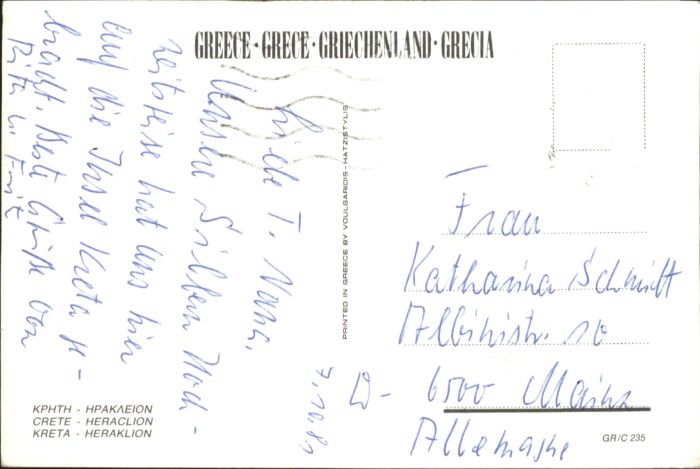 GREECE · GRECE · GRIECHENLAND · GRECIA
Liebe T. Nana,
Unsere Silbern Hoch-
zeitsreise hat uns hier
auf die Insel Kreta ge-
bracht. Beste Grüße von
u. Fritz
PRINTED IN GREECE BY VOULGARIDIS - HATZISTYLIS
Frau
Katharina Schmidt
10
D- 6500 Mainz
Allemagne
ΚΡΗΤΗ - ΗΡΑΚΛΕΙΟΝ
CRETE - HERACLION
KRETA - HERAKLION
GR/C 235